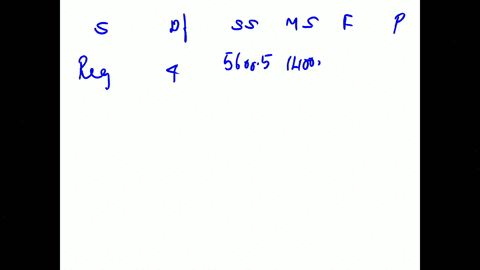 S Df SS MS F P
Reg 4 5600.5 1400.